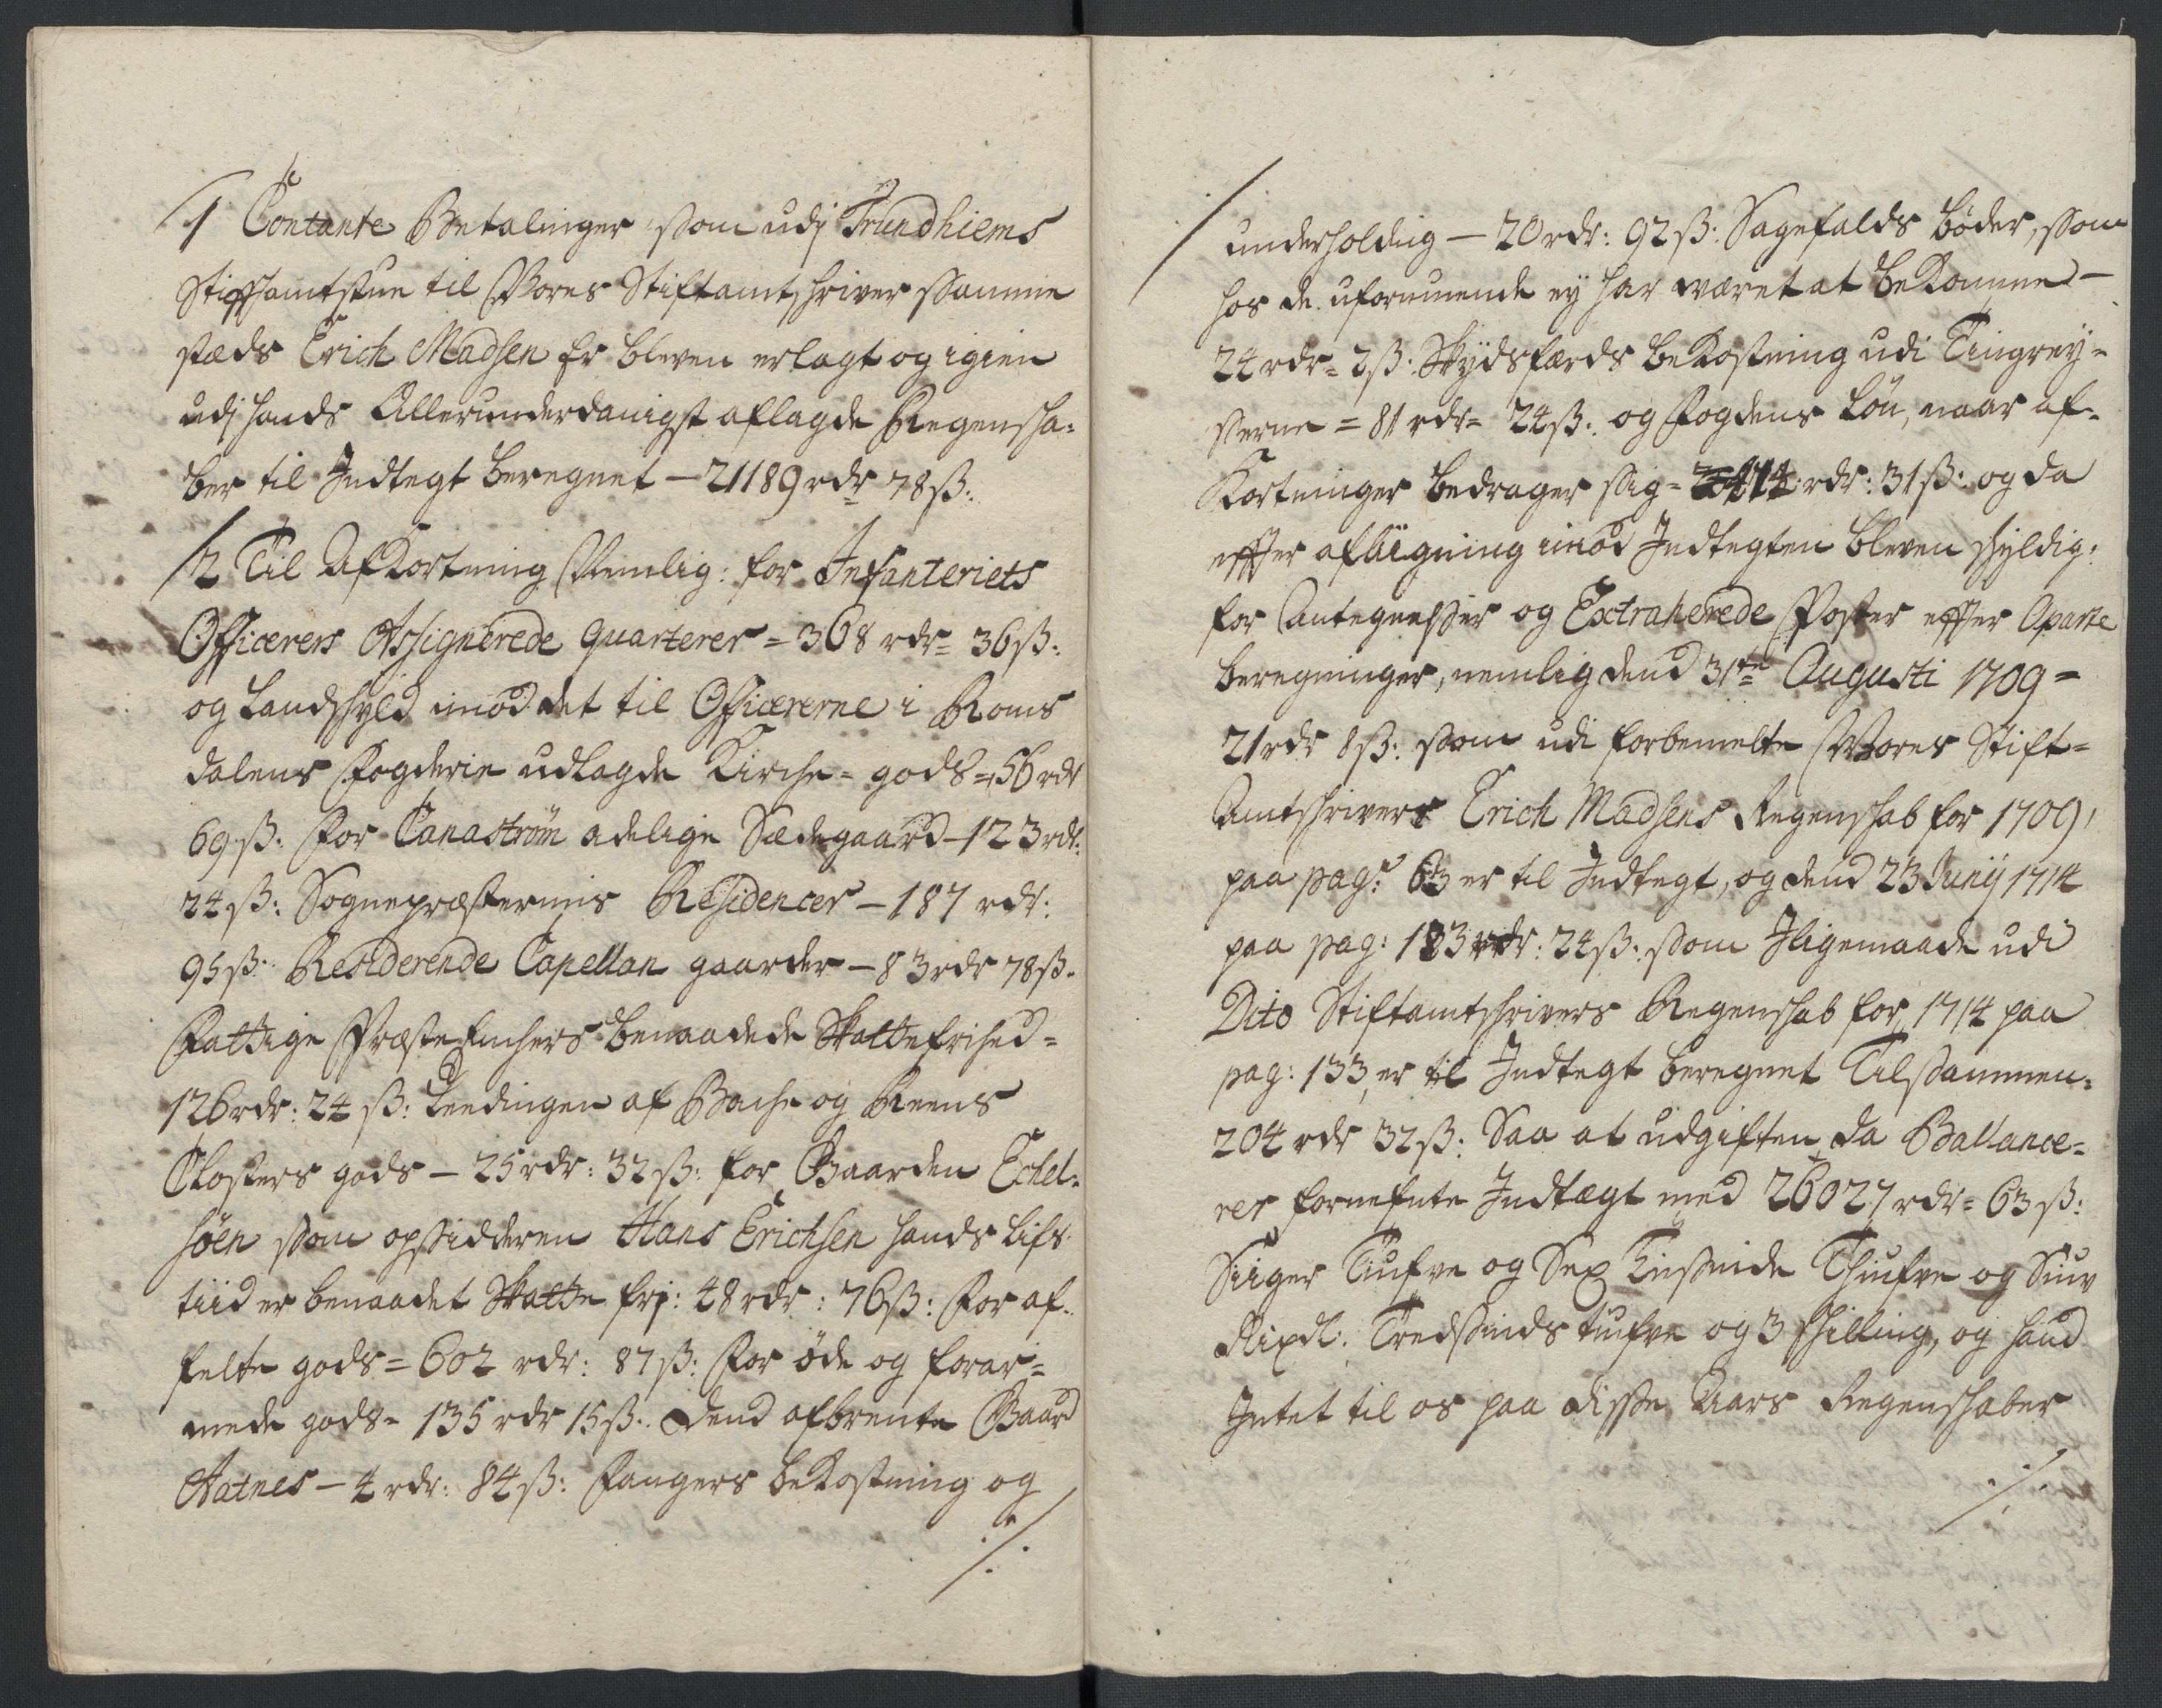 1 Contante Betalinger som udj Trundhiems
Stiftsamtstue til Vores Stiftamtschriver samme
stæds Erich Madsen Er bleven erlagt og igien
udj hands Allerunderdanigst aflagde Regenscha-
ber til Indtegt beregnet – 21189 rdr 78 ß:
2 Til Afkortning Nemlig: for Infanteriets
Officerers Assignerede quarterer = 368 rdr= 36 ß:
og Landschyld imod det til Officererne i Roms
dalens Fogderie udlagde Kirche-gods = 56 rdr
69 ß: For Tanastrøm adelige Sædegaard – 123 rdr:
24 ß: Sognepræsternis Residencer – 187 rdr:
95 ß: Residerende Capellan gaarder – 83 rdr 78 ß.
Fattige Præste Enchers benaadede Skattefrihed =
126 rdr: 24 ß: Leedingen af Bache og Reens
Closters gods – 25 rdr: 32 ß: for Gaarden Echel-
høen som opsidderen Hans Erichsen hands Lifs
tiid er benaadet Skatte frj: 48 rdr: 76 ß: For af-
felte gods = 602 rdr: 87 ß: For øde og forar-
mede gods = 135 rdr 15 ß: dend afbrente Gaard
Aatnes – 4 rdr: 84 ß: Fangers bekostning og
./.
underholdng – 20 rdr: 92 ß: Sagefalds bøder, som
hos de uformuende ey har wæret at bekomme –
24 rdr= 2 ß: Skydsfærds bekostning udi Tingrey-
serne = 81 rdr= 24 ß: og Fogdens Løn, naar af-
Kortninger bedrager sig = rdr: 31 ß: og da
effter afleigning imod Indtegten bleven schyldig:
for Antegnelser og Extraherede Poster effter Aparte
beregninger, nemlig dend 31te Augusti 1709 =
21 rdr 8 ß: som udi forbemelte Vores Stift-
Amtschrivers Erich Madsens Regenschab for 1709,
paa pag: 63 er til Indtegt, og dend 23 Junij 1714
paa pag: 183 rdr: 24 ß: som Iligemaade udi
Dito Stiftamtschrivers Regenschab for 1714 paa
pag: 133, er til Indtegt beregnet Tilsammen-
204 rdr 32 ß: Saa at udgiften da Ballance-
rer fornefnte Indtægt med 26027 rdr= 63 ß:
Siiger Tiufve og Sex Tusinde Thiufve og Siuv
Rixdl: Tredsinds tiufve og 3 schilling, og haud
Intet til os paa disse Aars Regenschaber
./.